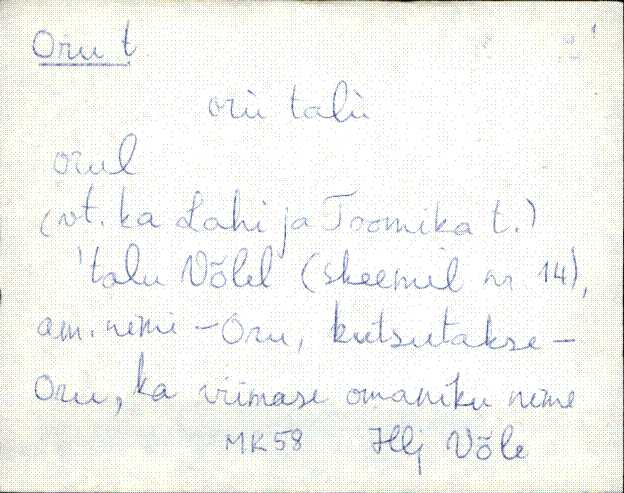 Oru t
orù talù
orul
(vt. ka Lahi ja Toomika t.)
'talu Võlel (skeemil nr 14),
am. nimi - Oru, kutsutakse -
Oru, ka viimase omaniku nime
MK 58 Hlj Võle